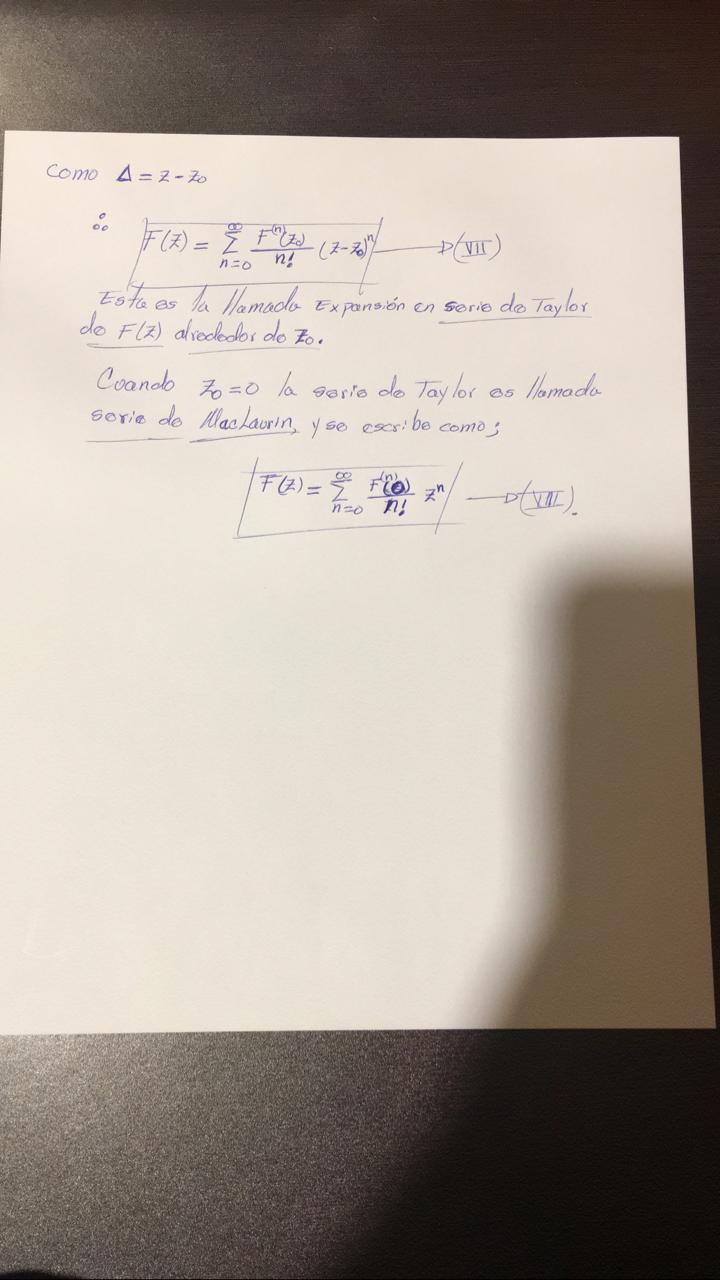 Como Δ = z - z₀
∴ F(z) = ∑_{n=0}^{∞} F⁽ⁿ⁾(z₀)/n! (z-z₀)ⁿ → (VII)
Esta es la llamada Expansión en serie de Taylor
de F(z) alrededor de z₀.
Cuando z₀=0 la serie de Taylor es llamada
serie de MacLaurin, y se escribe como;
F(z) = ∑_{n=0}^{∞} F⁽ⁿ⁾(0)/n! zⁿ → (VIII).